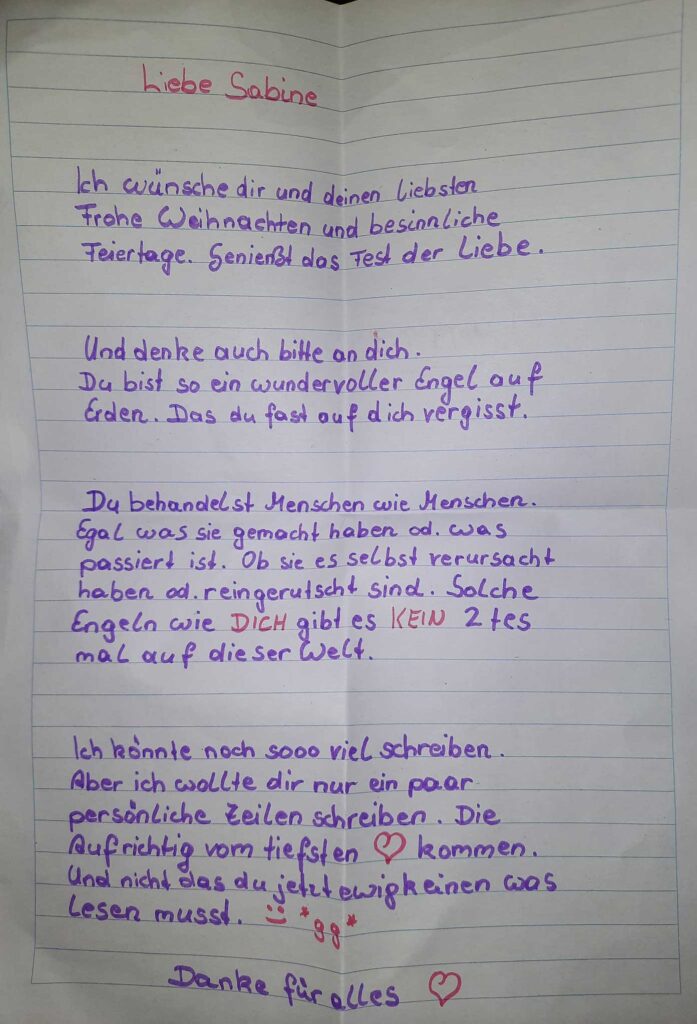 Liebe Sabine
Ich wünsche dir und deinen Liebsten
Frohe Weihnachten und besinnliche
Feiertage. Genießt das Fest der Liebe.
Und denke auch bitte an dich.
Du bist so ein wundervoller Engel auf
Erden. Das du fast auf dich vergisst.
Du behandelst Menschen wie Menschen.
Egal was sie gemacht haben od. was
passiert ist. Ob sie es selbst verursacht
haben od. reingerutscht sind. Solche
Engeln wie DICH gibt es KEIN 2tes
mal auf dieser Welt.
Ich könnte noch sooo viel schreiben.
Aber ich wollte dir nur ein paar
persönliche Zeilen schreiben. Die
Aufrichtig vom tiefsten ♡ kommen.
Und nicht das du jetzt ewig keinen was
Lesen musst. :) *gg*
Danke für alles ♡